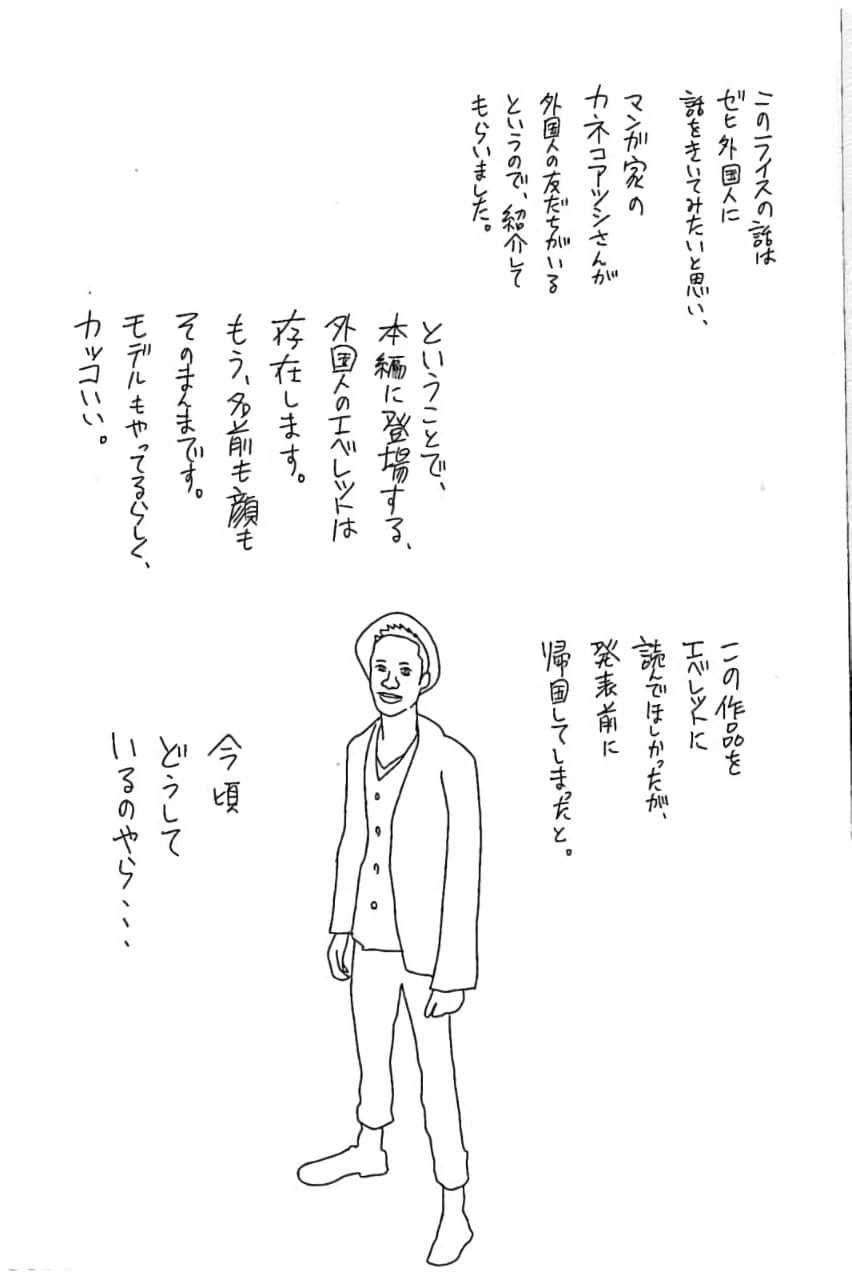 このライスの話は
ゼヒ外国人に
話をきいてみたいと思い、
マンガ家の
カネコアツシさんが
外国人の友だちがいる
というので、紹介して
もらいました。
ということで、
本編に登場する、
外国人のエベレットは
存在します。
もう、名前も顔も
そのまんまです。
モデルもやってるらしく、
カッコいい。
この作品を
エベレットに
読んでほしかったが、
発表前に
帰国してしまったと。
今頃
どうして
いるのやら、、、